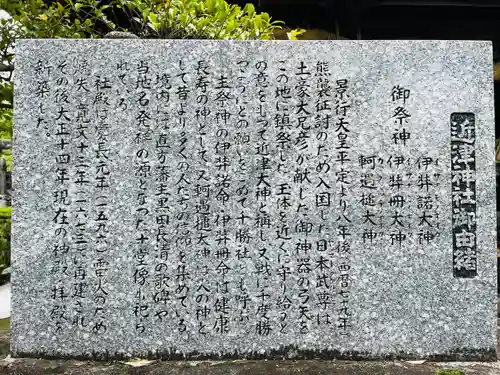 近津神社御由緒
御祭神
伊弉諾大神
伊弉冊大神
軻遇槌大神
景行天皇平定より八年後(西暦七九年)
熊襲征討のため入国した日本武尊は
土豪大兄彦が献じた御神器の弓矢を
この地に鎮祭した。玉体を近くに守り給うと
の意をとって近津大神と称し、又戦に十度勝
つようにとの願いをこめて十勝社とも呼ぶ
主祭神の伊弉諾命・伊弉冊命は健康
長寿の神として、又軻遇槌大神は火の神と
して昔より多くの人たちの信仰を集めている。
境内には直方藩主黒田長清の歌碑や
当地名発祥の源となった十堂仏像小祀ら
れている。
社殿は慶長元年(一五九六)雷火のため
焼失、寛文十三年(一六七三)に再建され
その後大正十四年現在の神殿、拝殿を
新築した。